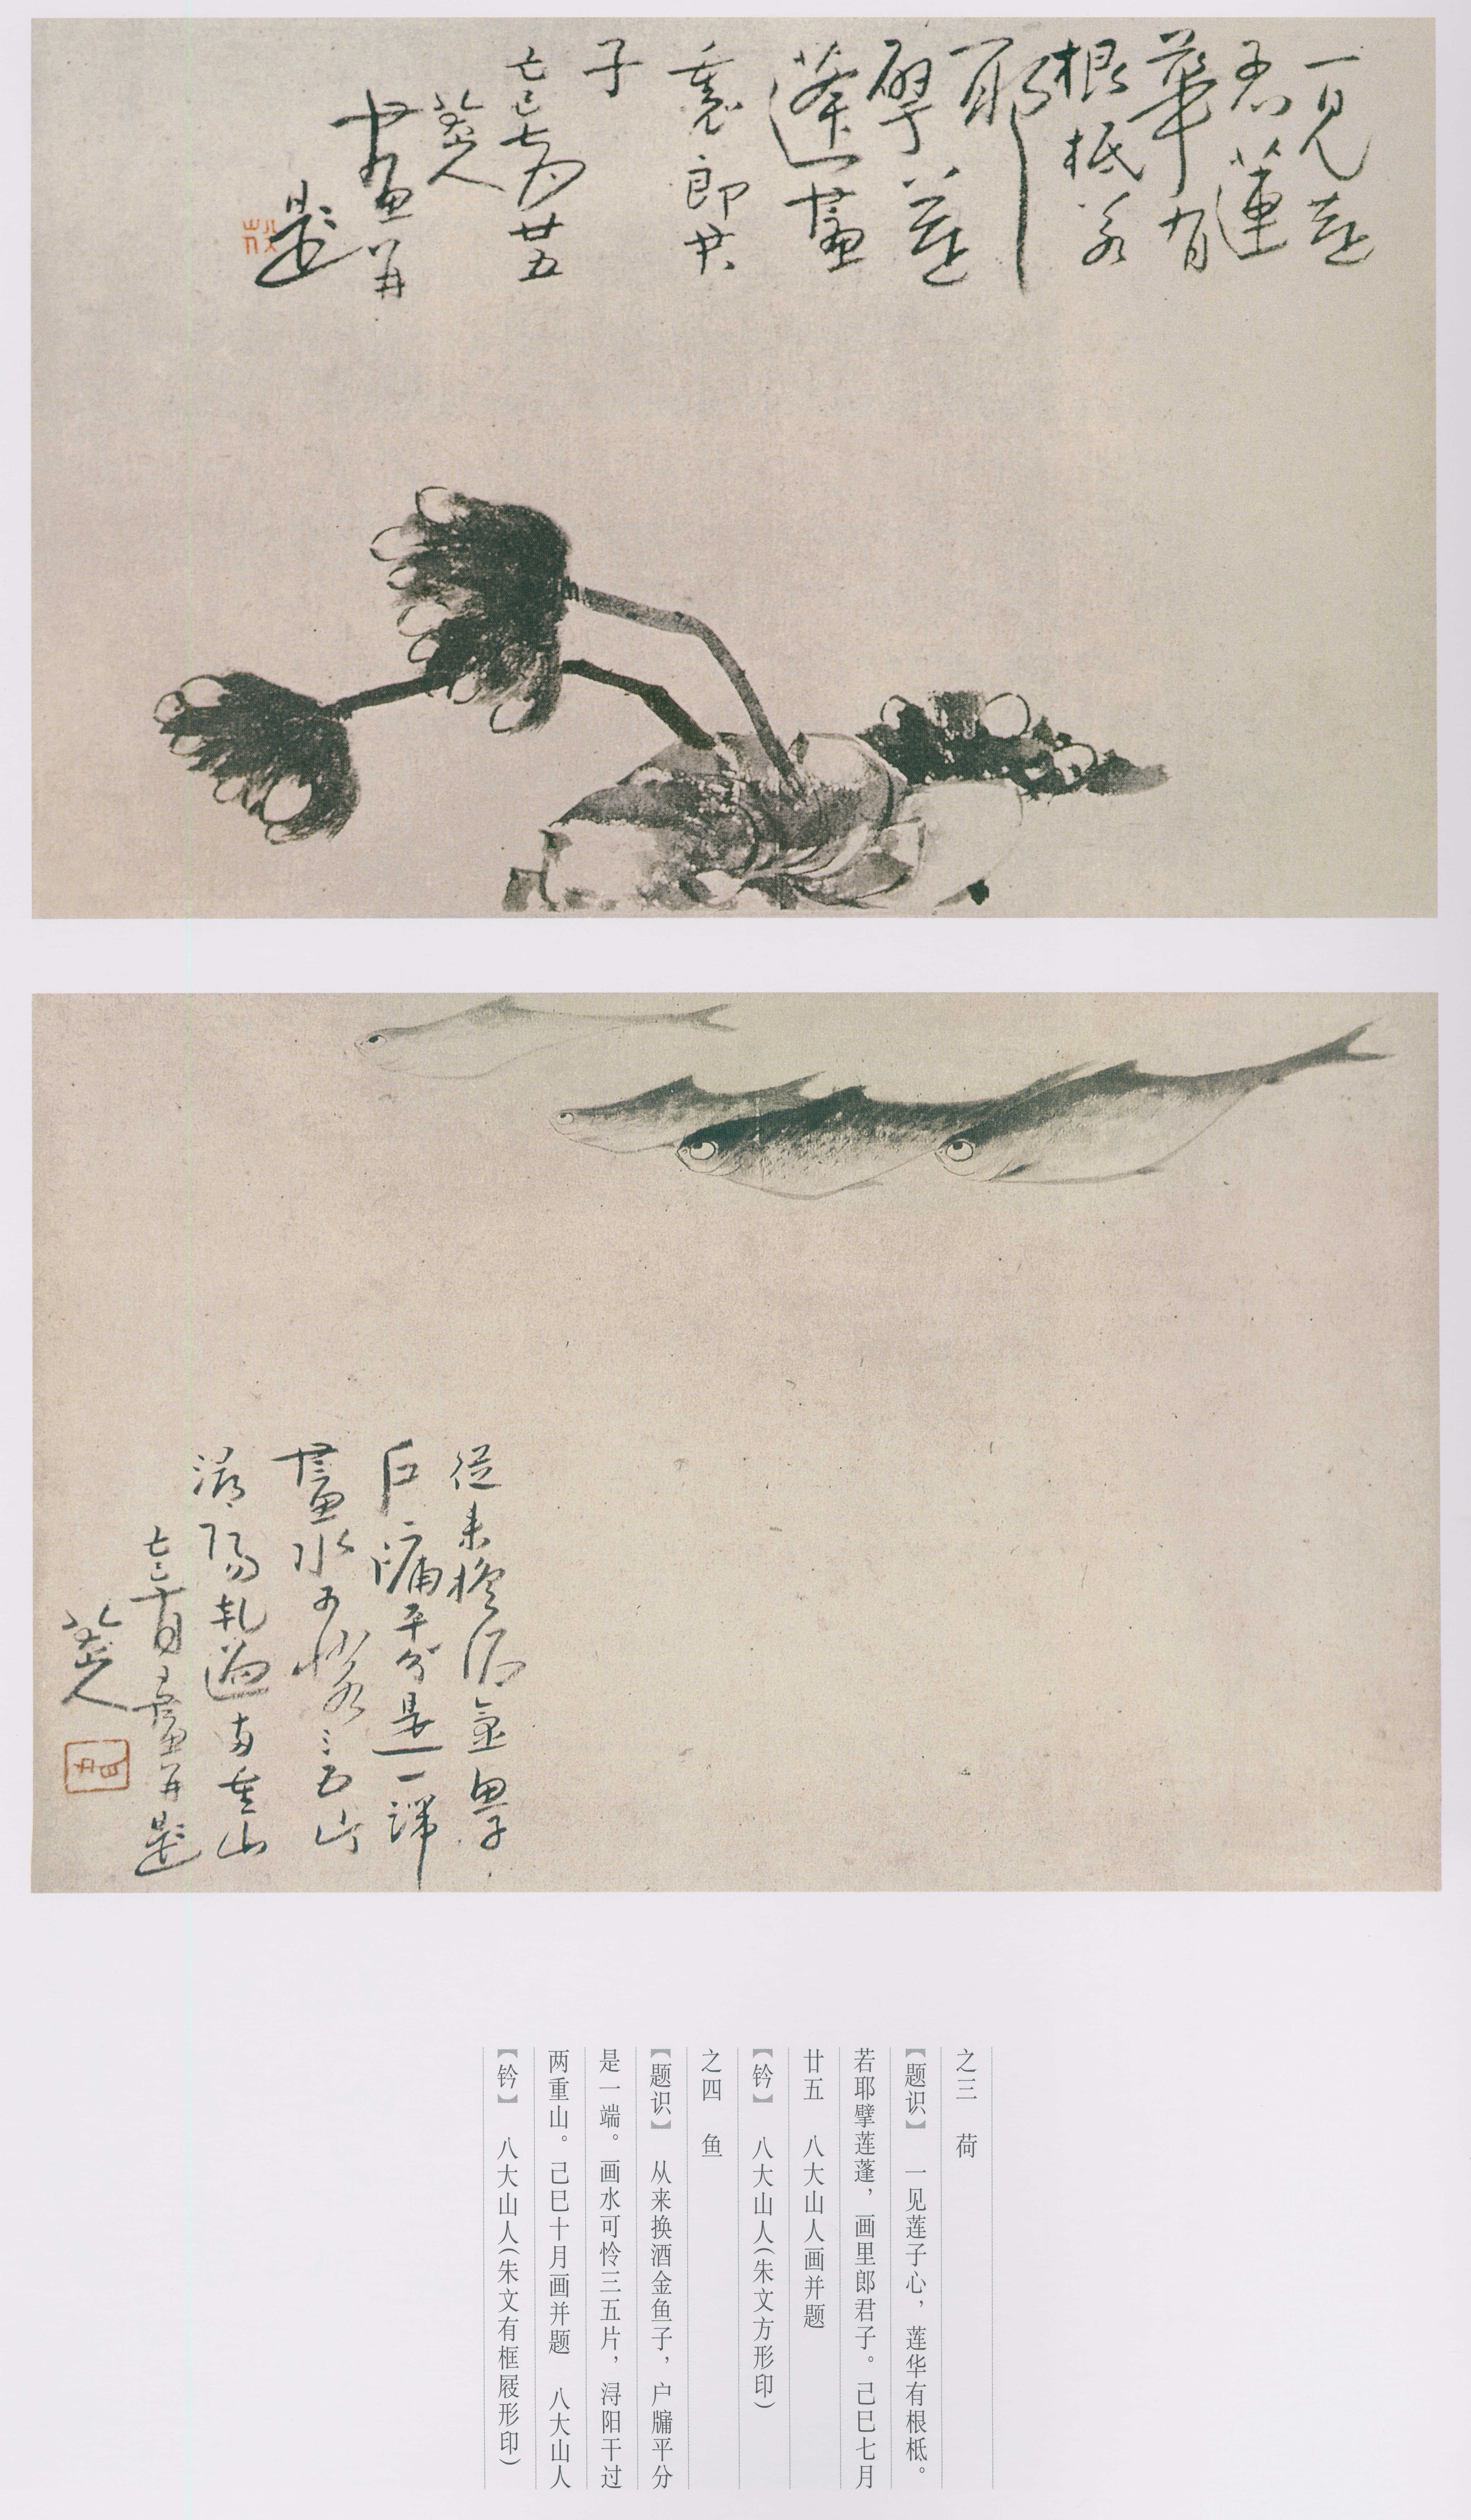 一見蓮
子心蓮
華有
根柢若
耶
擘蓮
蓬畫
裏郎君
子
己巳七月廿五
八大山人
畫并
題
從來換酒金魚子
戶牖平分是一端
畫水可憐三五片
潯陽軋過兩重山
己巳十月畫并題
八大山人
之三 荷
【题识】 一见莲子心，莲华有根柢。
若耶擘莲蓬，画里郎君子。己巳七月
廿五 八大山人画并题
【钤】 八大山人(朱文方形印)
之四 鱼
【题识】 从来换酒金鱼子，户牖平分
是一端。画水可怜三五片，浔阳干过
两重山。己巳十月画并题 八大山人
【钤】 八大山人(朱文有框屐形印)